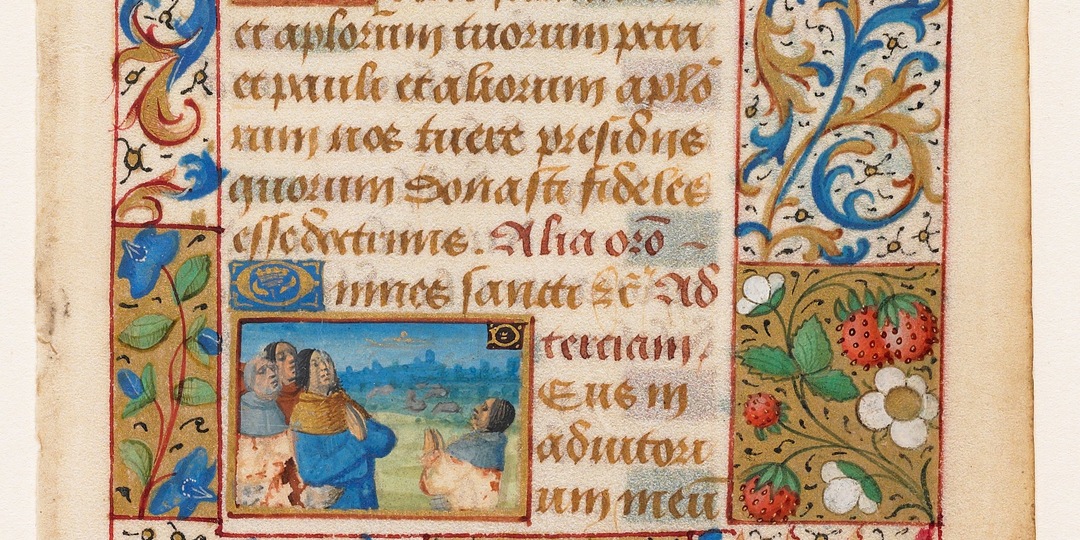 et aplorum tuorum petri
et pauli et aliorum aplō
rum nos tuere presidiis
quorum donasti fideles
esse doctrinis. Alia orō
Omnes sancti zc̄ Ad
terciam
Deus in
adiutori
um meū